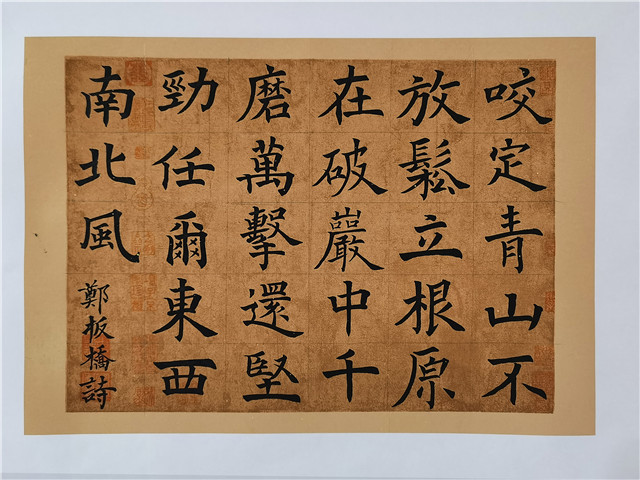 咬定青山不
放鬆立根原
在破巖中千
磨萬擊還堅
勁任爾東西
南北風
鄭板橋詩